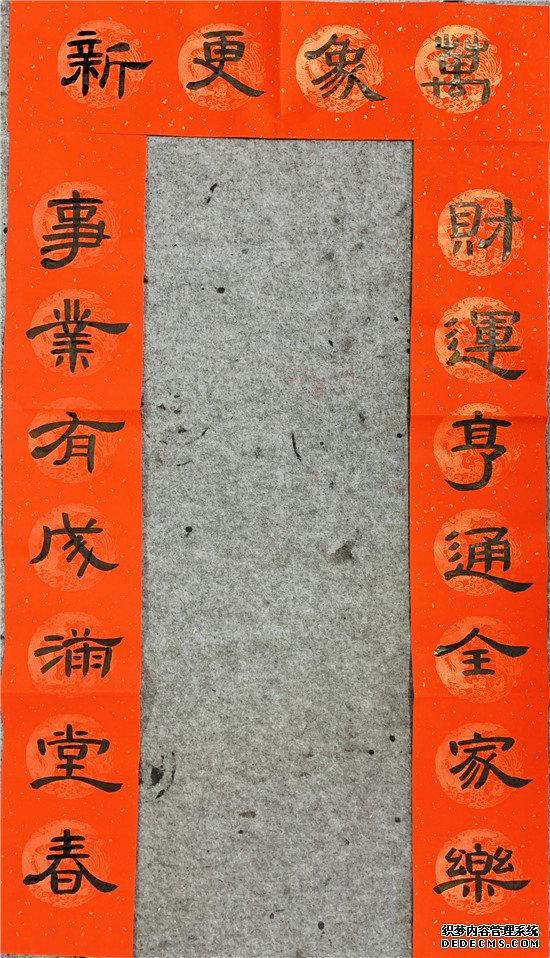 萬象更新
財運亨通全家樂
事業有成滿堂春
织梦内容管理系统
DEDECMS.COM